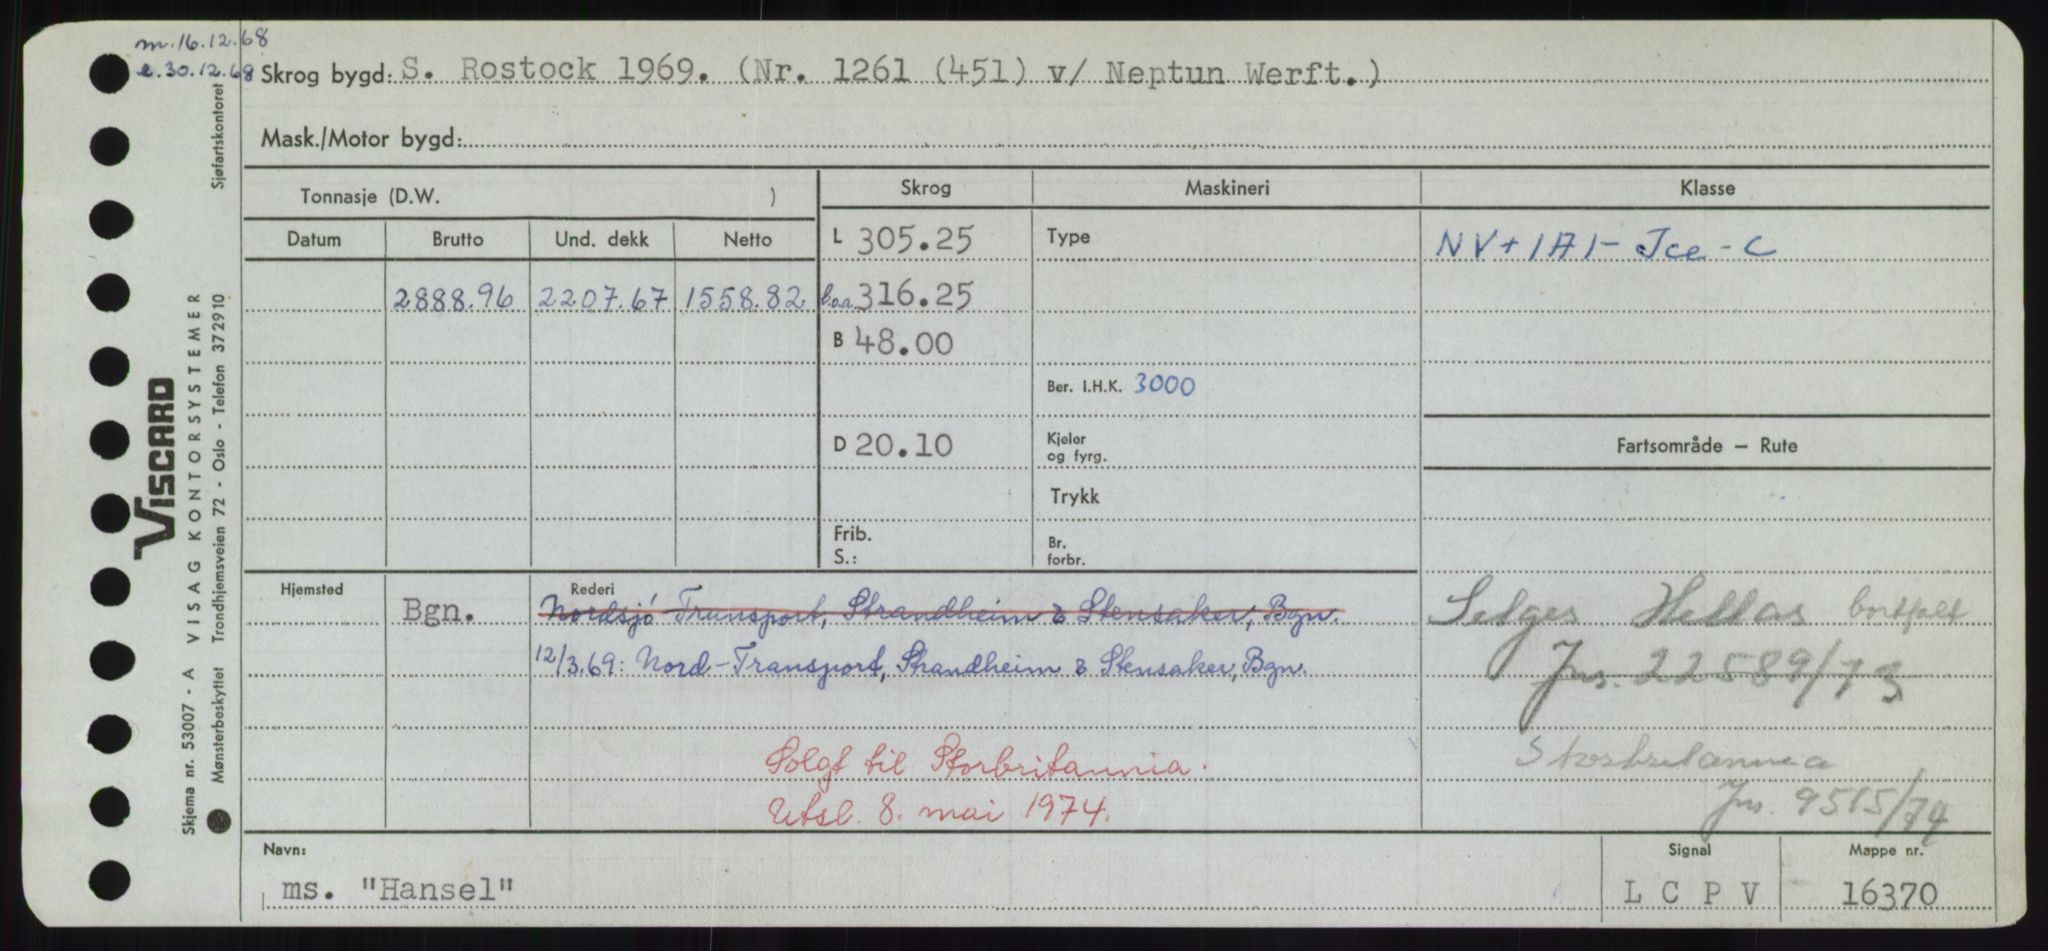 m.16.12.68
e.30.12.68
Skrog bygd: S. Rostock 1969. (Nr. 1261 (451) v/ Neptun Werft.)
Mask./Motor bygd:
Tonnasje (D.W. )
Skrog
Maskineri
Klasse
Datum
Brutto
Und. dekk
Netto
L 305.25
Type
NV+1A1-Ice-C
2888.96 2207.67 1558.82
l.o.a. 316.25
B 48.00
Ber. I.H.K. 3000
D 20.10
Kjeler
og fyrg.
Fartsområde — Rute
Trykk
Frib.
S.:
Br.
forbr.
Hjemsted
Rederi
Bgn.
Nordsjö Transport, Strandheim & Stensaker, Bgn.
Selges Hellas bortfalt
12/3.69: Nord-Transport, Strandheim & Stensaker, Bgn.
Jnr. 22589/73
Solgt til Storbritannia.
Storbritannia
Utsl. 8. mai 1974.
Jnr. 9515/74
Navn:
Signal
Mappe nr.
ms. "Hansel"
L C P V
16370
VISCARD
Skjema nr. 53007 - A VISAG KONTORSYSTEMER
Mønsterbeskyttet Trondhjemsveien 72 - Oslo - Telefon 372910
Sjøfartskontoret